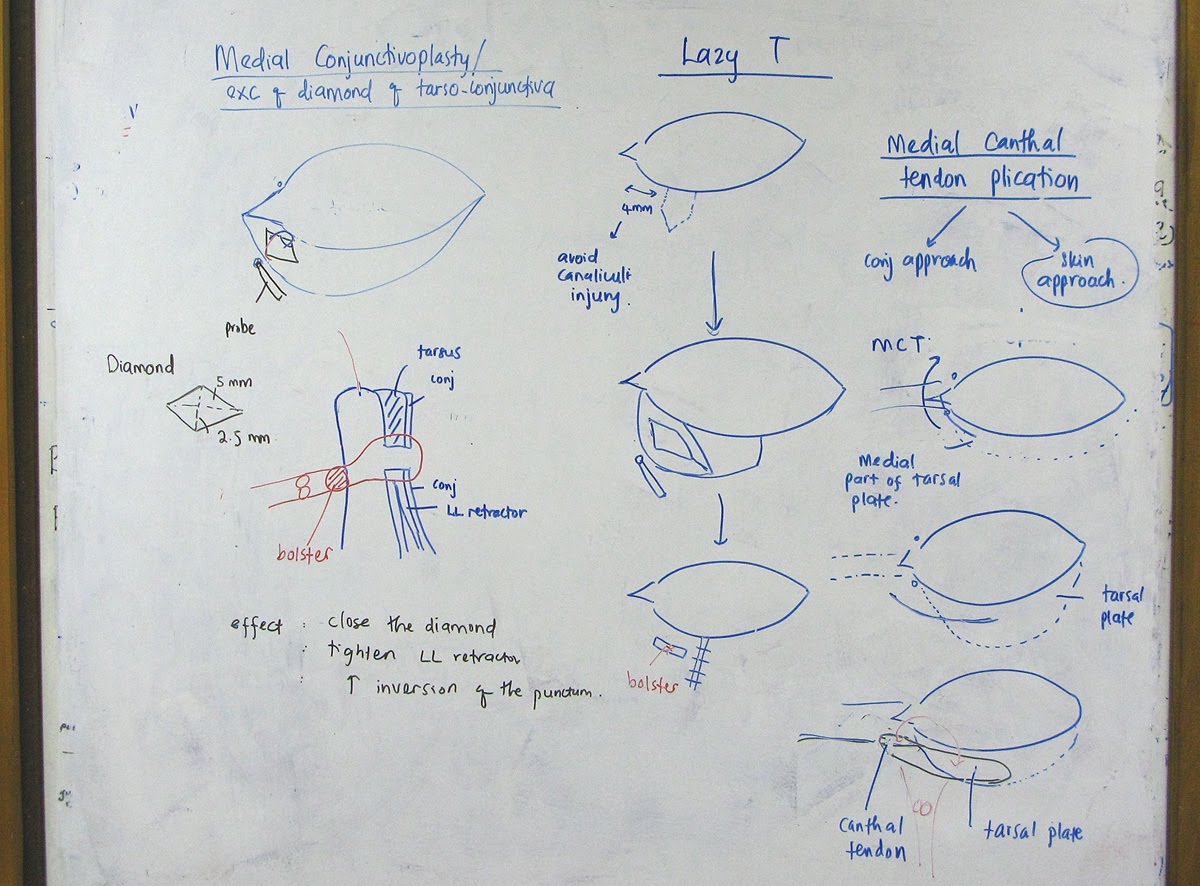 Medial Conjunctivoplasty/
exc of diamond of tarso-conjunctiva
v
probe
Diamond
5 mm
2.5 mm
tarsus
conj
conj
LL retractor
bolster
effect : close the diamond
: tighten LL retractor
: ↑ inversion of the punctum.
Lazy T
4mm
avoid
canaliculi
injury.
bolster
Medial Canthal
tendon plication
conj approach
skin
approach.
MCT.
Medial
part of tarsal
plate.
tarsal
plate
Canthal
tendon
tarsal plate